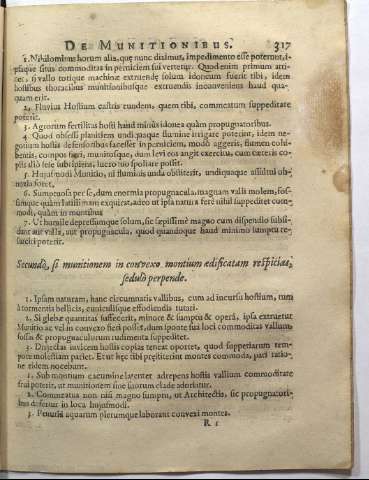 DE MUNITIONIBUS. 317
1. Nihilominus horum alia, quę nunc diximus, impedimento esse poterunt, i-
psaque situs commoditas in perniciem sui vertetur. Quod enim primum atti-
net, si vallo totique machinæ extruendę solum idoneum fuerit tibi, idem
hostibus thoracibus munitionibusque extruendis inconveniens haud qua-
quam erit.
2. Fluvius Hostium castris eundem, quem tibi, commeatum suppeditate
poterit.
3. Agrorum fertilitas hosti haud minus idonea quàm propugnatoribus.
4. Quod obsessi planitiem undiquaque flumine irrigare poterint, idem ne-
gotium hostis defensoribus facesset in perniciem, modò aggeris, flumen cohi-
bentis, compos fiat, munitosque, dum levi eos angit exercitu, cum cæteris co-
piis alio sese subripiens, lucro tuo spoliare possit.
5. Hujusmodi Munitio, ni fluminis unda obstiterit, undiquaque assultui ob-
noxia foret.
6. Sumptuosa per se, dum enormia propugnacula, magnam valli molem, fos-
samque quàm latissimam exquirat, adeo ut ipsa natura ferè nihil suppeditet com-
modi, quàm in montibus
7. Ut humile depressumque solum, sic sæpissimè magno cum dispendio subsi-
dunt aut valla, aut propugnacula, quod quandoque haud minimo sumptu re-
sarciri poterit.
Secundò, si munitionem in convexo montium ædificatam respicias,
sedulò perpende.
1. Ipsam naturam, hanc circumnatis vallibus, cum ad incursu hostium, tum
à tormentis bellicis, cuniculisque effodiendis tutari.
2. Si glebæ quantitas suffecerit, minore & sumptu & operâ, ipsa extruetur
Munitio ac vel in convexo fieri posset, dum sponte sui loci commoditas vallum,
fossas & propugnaculorum rudimenta suppeditet.
3. Disjectas invicem hostis copias teneat oportet, quod suppetiarum tem-
pore molestiam pariet. Et ut hęc tibi pręstiterint montes commoda, pari ratio-
ne eidem nocebunt.
1. Sub montium cacumine latenter adrepens hostis vallium commoditate
frui poterit, ut munitionem sine suorum clade adoriatur.
2. Commeatus non nisi magno sumptu, ut Architectis, sic propugnatori-
bus defertur in loca hujusmodi.
3. Penuriâ aquarum plerumque laborant convexi montes.
R r